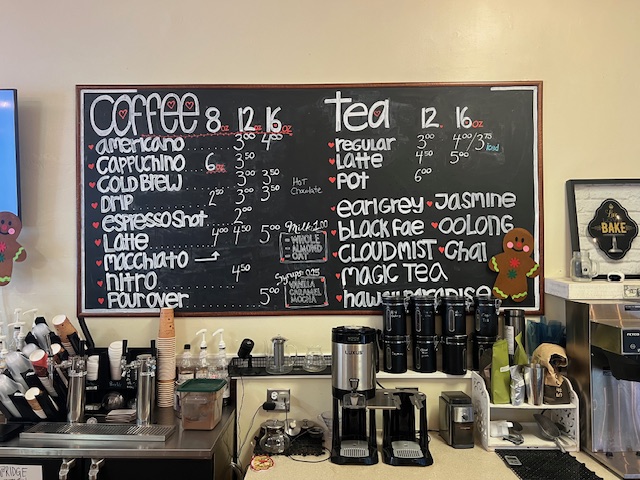 Coffee 8oz 12oz 16oz
americano 3⁰⁰ 4⁰⁰
cappuchino 6oz 3⁵⁰
COLD BREW 3⁰⁰ 3⁵⁰
Drip 2⁵⁰ 3⁰⁰ 3⁵⁰
HOT Chocolate
espresso shot 2⁰⁰
Latte 4⁰⁰ 4⁵⁰ 5⁰⁰
macchiato
nitro 4⁵⁰
POUROVER 5⁰⁰
Milk 1.00
WHOLE
ALMOND
OAT
Syrups 0.25
VANILLA
CARAMEL
MOCHA
Tea 12. 16oz
regular 3⁰⁰ 4⁰⁰/3⁷⁵ Iced
Latte 4⁵⁰ 5⁰⁰
POT 6⁰⁰
earl grey Jasmine
black Fae OOLONG
CLOUD MIST Chai
magic Tea
Hawaii Paradise
BAKE
LUXUS